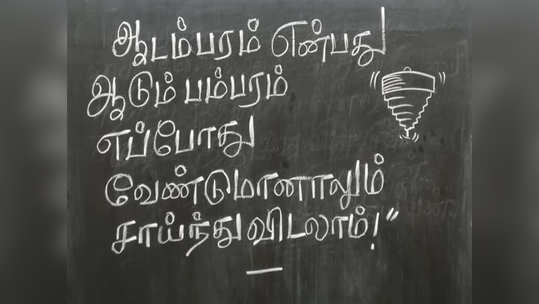 ஆடம்பரம் என்பது
ஆடும் பம்பரம்
எப்போது
வேண்டுமானாலும்
சாய்ந்து விடலாம்!"